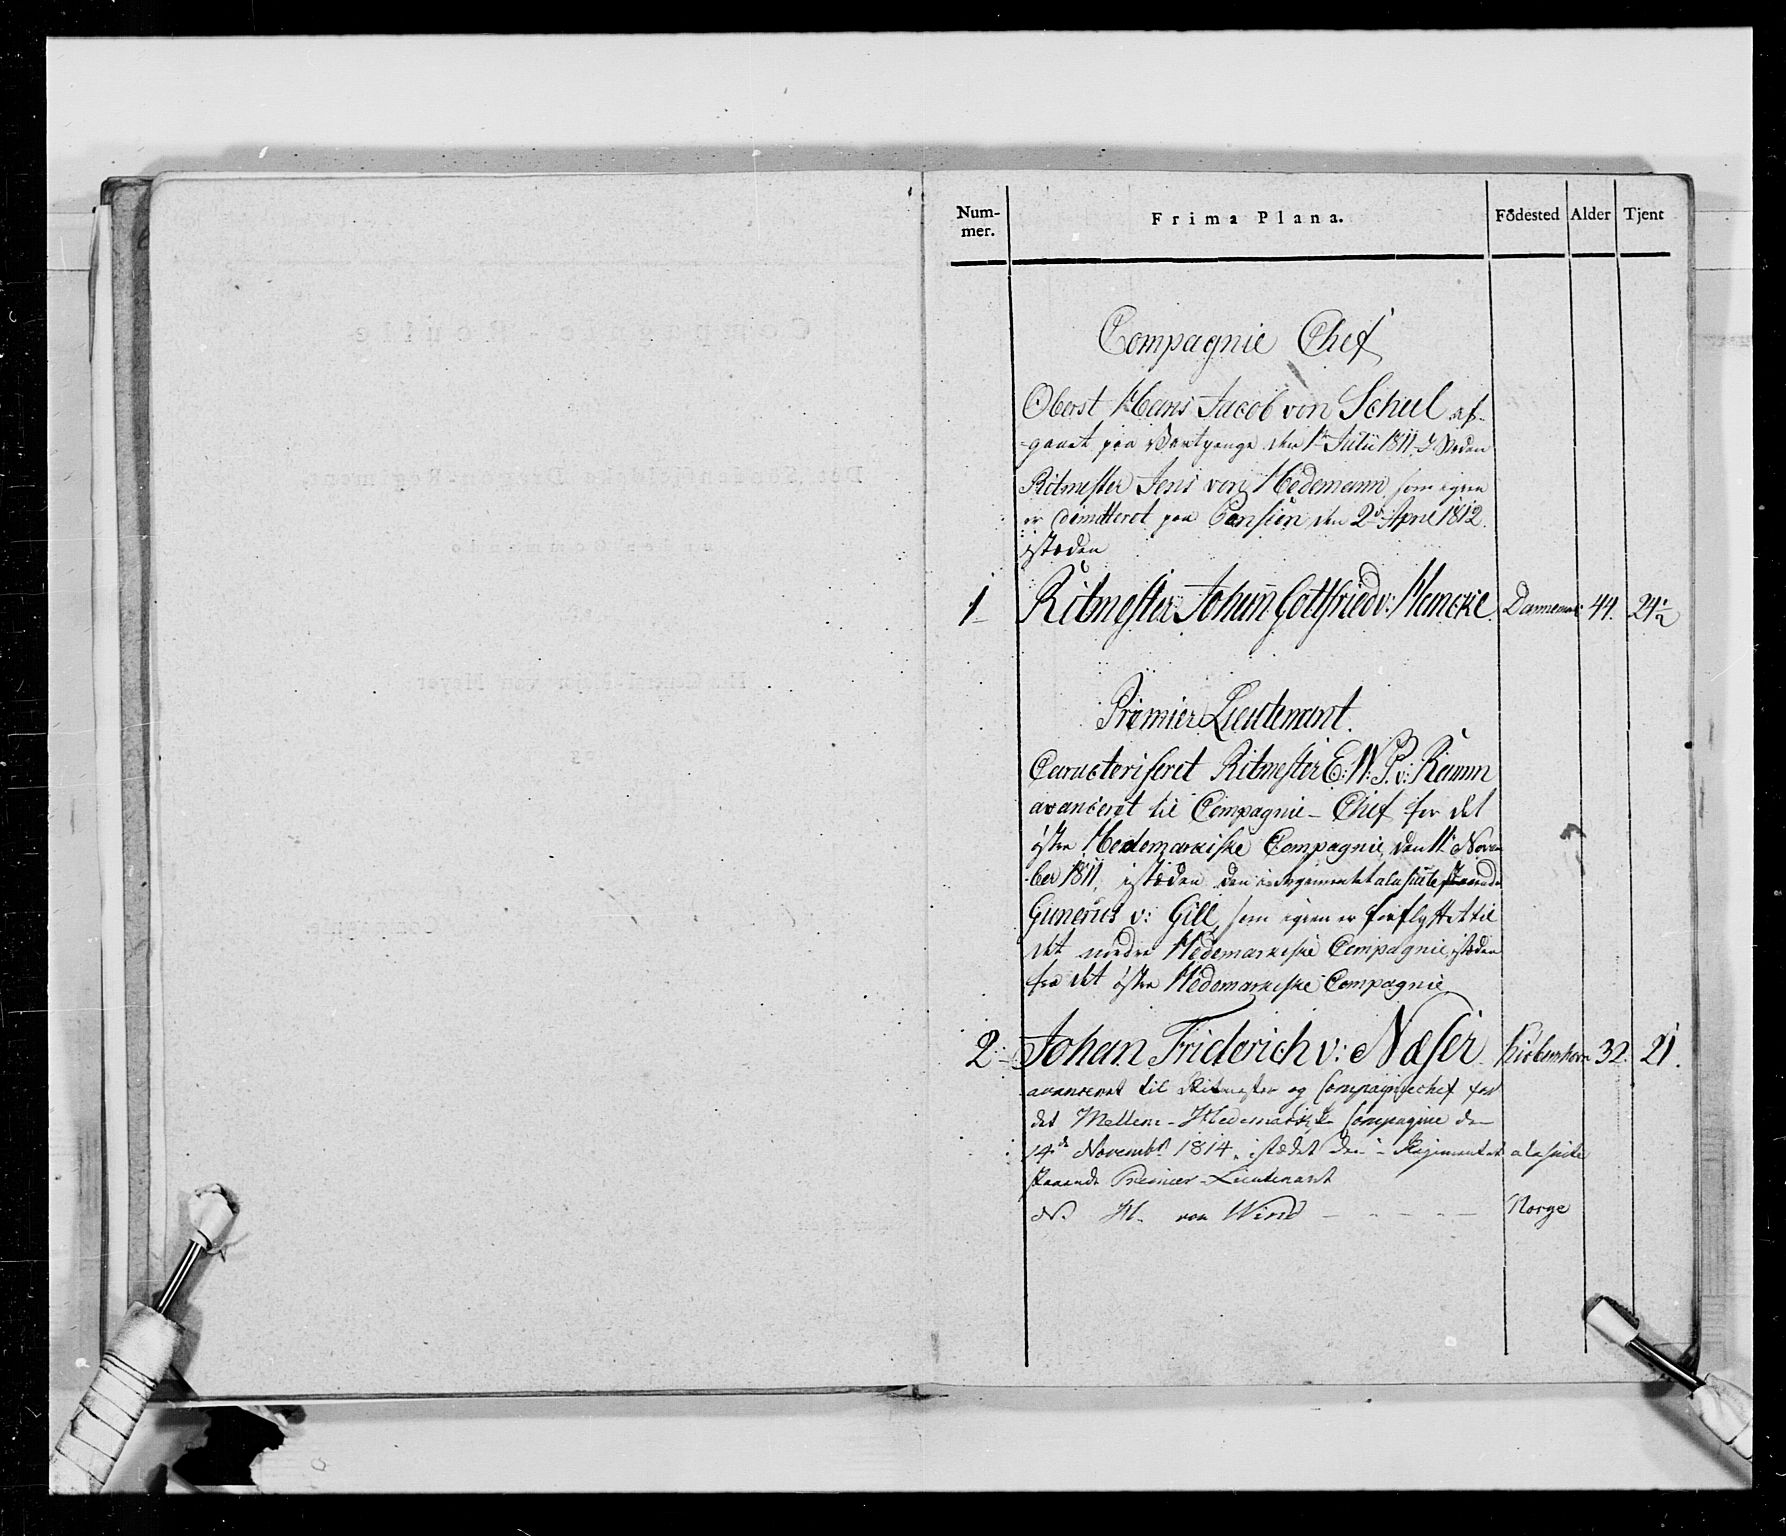 Num-
mer.
Frima Plana.
Födested
Alder
Tjent
Compagnie Chef
Oberst Hans Jacob von Scheel af-
-gaaet paa Vartpenge den 1te Julii 1811. I Steden
Ritmester Jens von Hedemann, som igien
er dimitteret paa Pension den 2den April 1812.
istæden
1 Ritmester Johan Gottfried v: Mancke Danemark 44. 24½
Premier Lieutenant.
Caracteriseret Ritmester E: W: P. v: Ramm
avanceret til Compagnie-Chef for det
østre Hedemarkiske Compagnie den 11te Novem
ber 1811, istæden den i Regimentet a la suite staaende
Gunerus v: Gill, som igien er forflyttet til
det nordre Hedemarkiske Compagnie, istæden
fra det østre Hedemarkiske Compagnie
2 Johan Friderich v: Næser Kiöbenhavn 32. 21.
avanceret til Ritmester og Compagniechef for
det Mellem-Hedemarkiske Compagnie den
14de Novembr 1814, istædet den i Regimentet a la suite
staaende Premier-Lieutenant
N. H. von Wind - - - - - Norge